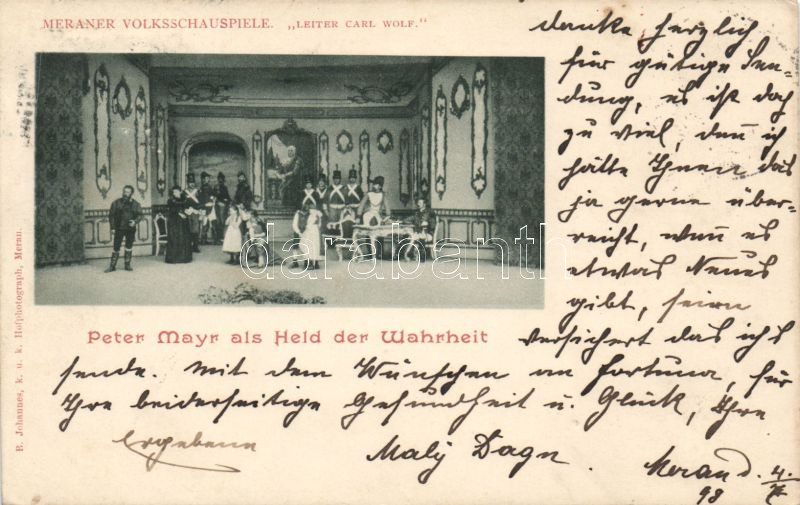 MERANER VOLKSSCHAUSPIELE. „LEITER CARL WOLF."
danke herzlich
für gütige Sen-
dung, es ist doch
zu viel, denn ich
hätte Ihnen das
ja gerne über-
reicht, wenn es
etwas Neues
gibt, seien
versichert das ichs
sende. Mit dem Wünschen an Fortuna, für
Ihre beiderseitige Gesundheit u. Glück, Ihre
Ergebene
Maly Dagn.
Meran d. 4./
98
Peter Mayr als Held der Wahrheit
B. Johannes, k. u. k. Hofphotograph, Meran.
darabanth